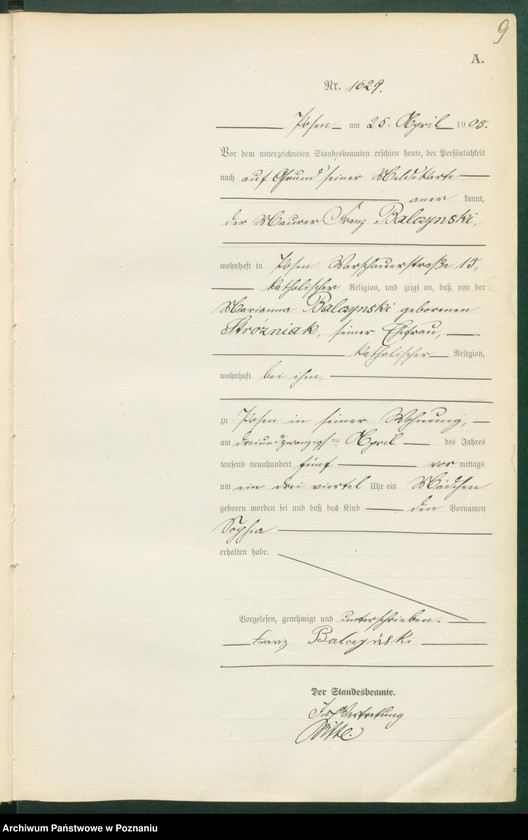 9
A.
Nr. 1629.
Posen am 25. April 1905.
Vor dem unterzeichneten Standesbeamten erschien heute, der Persönlichkeit
nach auf Grund seiner Meldekarte
aner kannt,
der Maurer Franz Balczynski,
wohnhaft in Posen Warschauerstraße 15,
katholischer Religion, und zeigt an, daß von der
Marianna Balczynski geborenen
Stróżniak, seiner Ehefrau,
katholischer Religion,
wohnhaft bei ihm,
zu Posen in seiner Wohnung,
am dreiundzwanzigsten April des Jahres
tausend neunhundert fünf vor mittags
um ein drei viertel Uhr ein Mädchen
geboren worden sei und daß das Kind den Vornamen
Sophia
erhalten habe.
Vorgelesen, genehmigt und unterschrieben.
Franz Balczyński
Der Standesbeamte.
In Vertretung
Archiwum Państwowe w Poznaniu